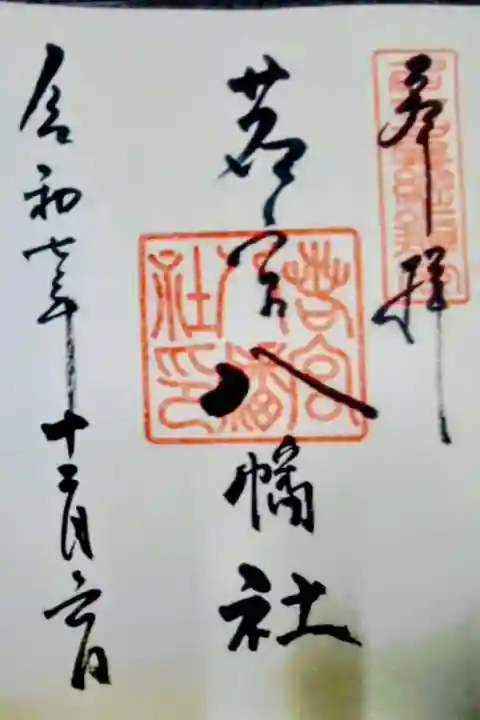 奉拝
若宮八幡社
若宮八幡社印
令和七年十二月六日